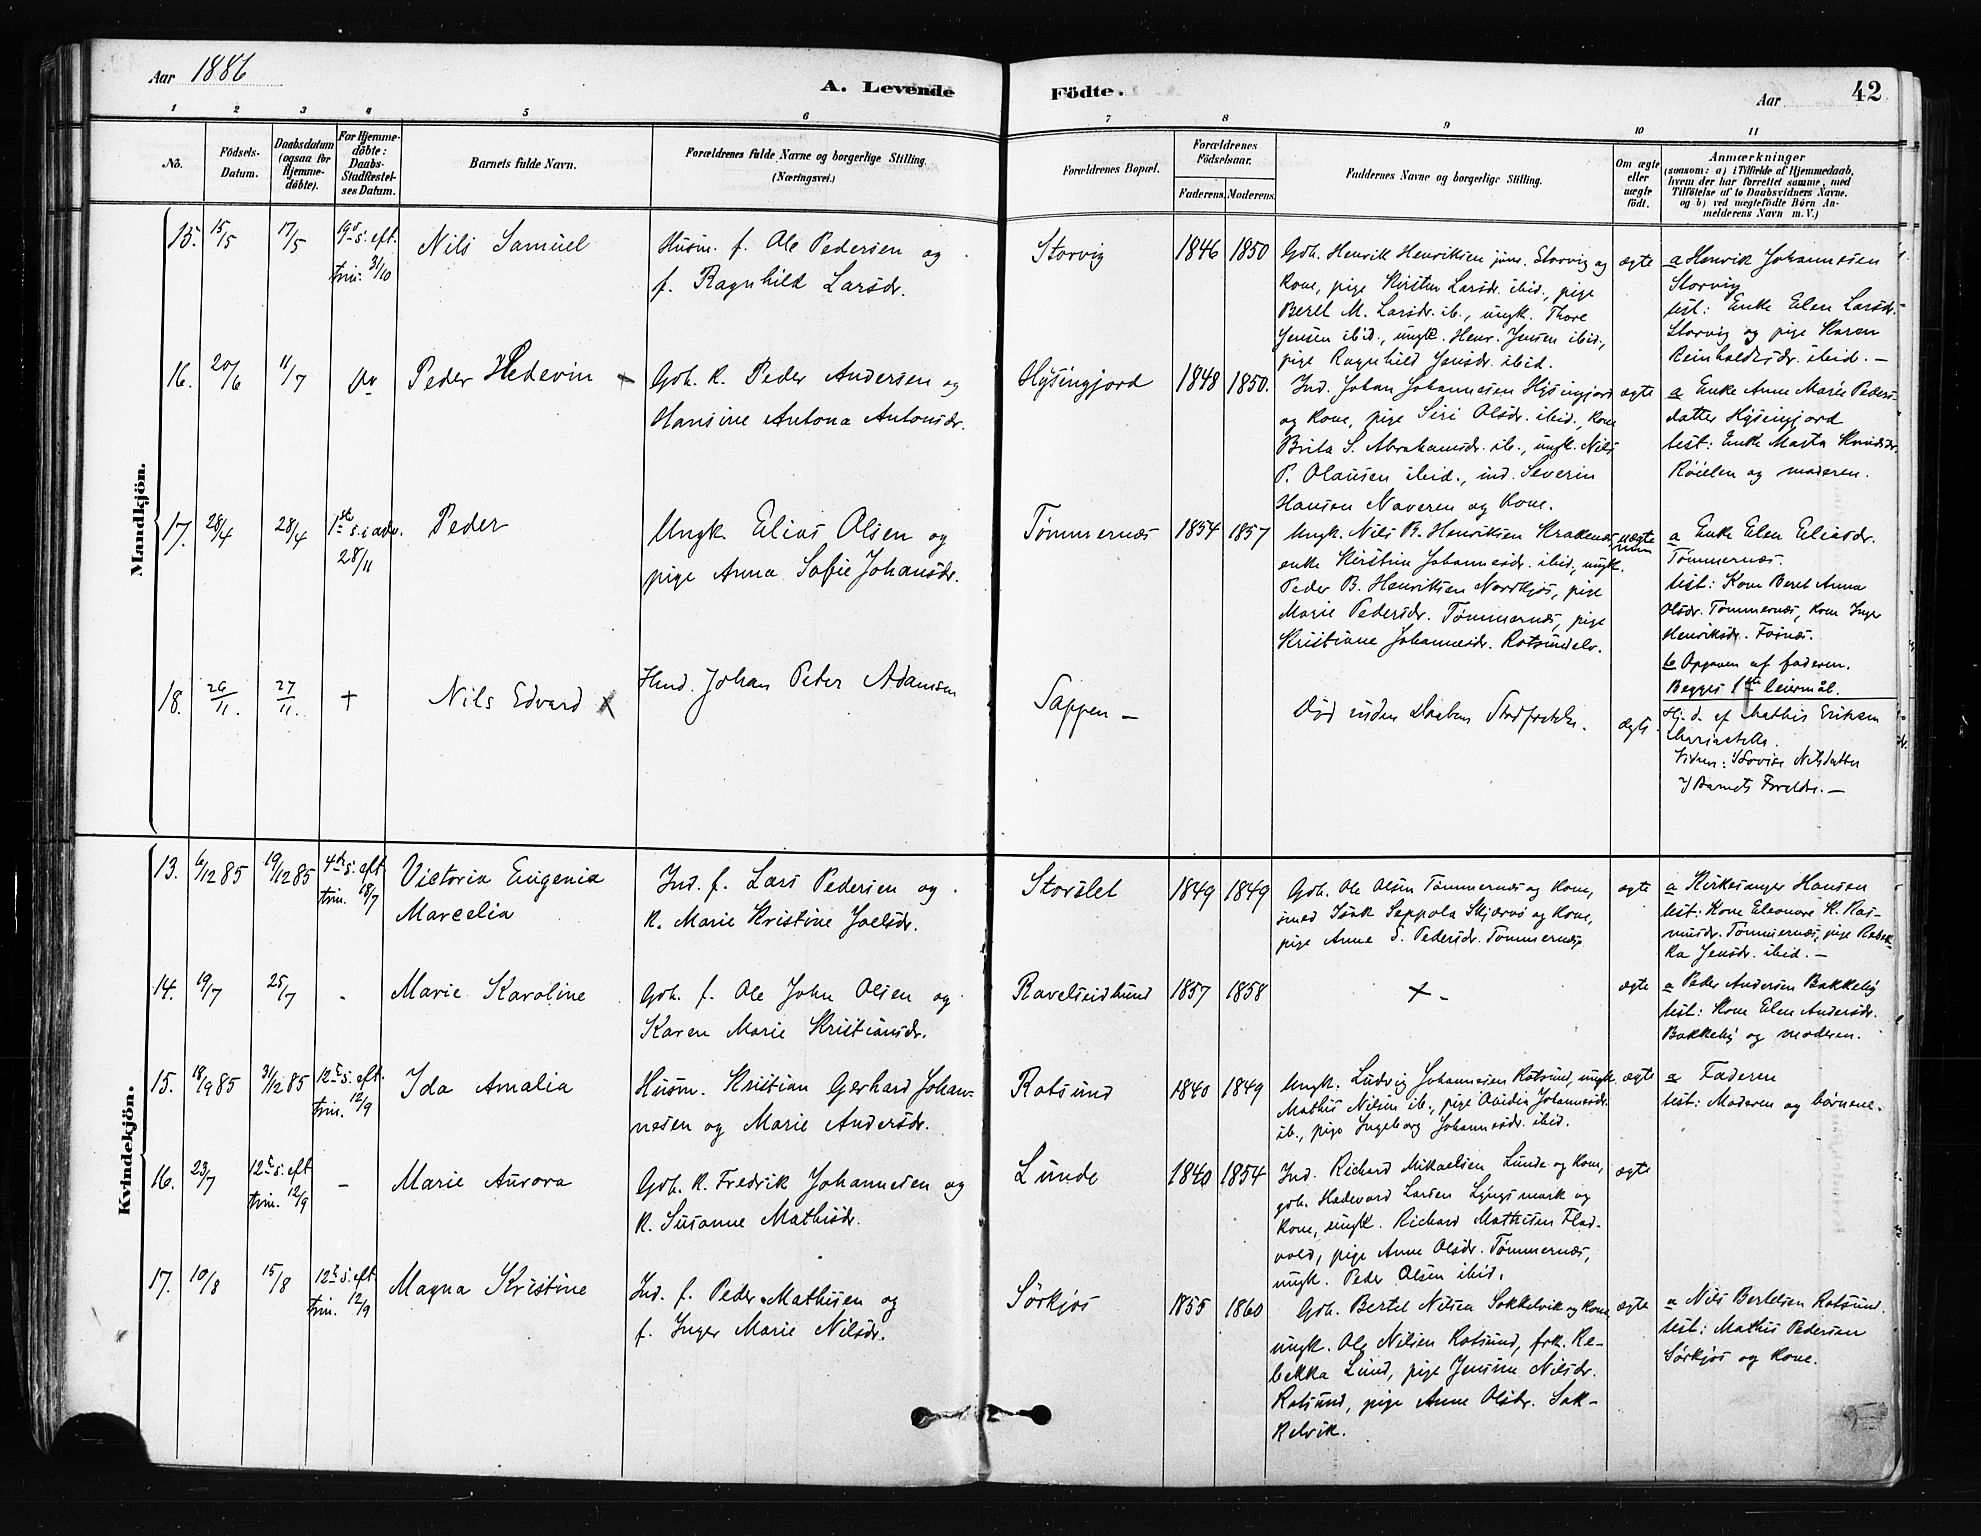 Aar 1886
A. Levende Födte.
Aar 42
1 2 3 4 5 6 7 8 9 10 11
No.
Födsels-Datum.
Daabsdatum (ogsaa for Hjemme-döbte).
For Hjemme-döbte: Daabs-Stadfæstel-ses Datum.
Barnets fulde Navn.
Forældrenes fulde Navne og borgerlige Stilling.
(Næringsvei.)
Forældrenes Bopæl.
Forældrenes Födselsaar.
Faderens. Moderens.
Faddernes Navne og borgerlige Stilling.
Om ægte eller uægte födt.
Anmærkninger
(saasom: a) i Tilfælde af Hjemmedaab,
hvem der har forrettet samme, med
Tilföielse af to Daabsvidners Navne.
og b) ved uægtefödte Börn An-
melderens Navn m. V.)
Mandkjön.
15. 15/5 17/5 19de s. eft. trin. 31/10
Nils Samuel
Husm. f. Ole Pedersen og
f. Ragnhild Larsdr.
Storvig 1846 1850
Gdb. Henrik Henriksen jun. Storvig og
kone, pige Kirsten Larsdr. ibid., pige
Beret M. Larsdr. ib., ungk. Thore
Jensen ibid., ungk. Henr. Jensen ibid.,
pige Ragnhild Jensdr. ibid.
ægte
a Henrik Johannesen
Storvig
test: Enke Elen Larsdr.
Storvig og pige Karen
Reinholdtsdr. ibid. —
16. 20/6 11/7 do
Peder Hedevin +
Gdb. k. Peder Andersen og
Hansine Antona Antonsdr.
Hysingjord 1848 1850.
Ind. Johan Johannesen Hysingjord
og kone, pige Siri Olsdr. ibid., kone
Brita S. Abrahamsdr. ib., ungk. Nils
P. Olausen ibid., ind. Severin
Hansen Naveren og kone.
ægte
a Enke Anne Marie Peders-
datter Hysingjord
test: Enke Marta Knudsdr.
Röielen og moderen.
17. 28/4 28/4 1ste s. i adv. 28/11
Peder
Ungk. Elias Olsen og
pige Anna Sofie Johansdr.
Tømmernæs 1854 1857
Ungk. Nils B. Henriksen Krakenæs
enke Kirstin Johannesdr. ibid., ungk.
Peder B. Henriksen Nordkjos, pige
Marie Pedersdr. Tømmernæs, pige
Kristiane Johannesdr. Rotsundelv.
uægte
a Enke Elen Eliasdr.
Tømmernæs.
test: Kone Beret Anna
Olsdr. Tømmernæs, kone Inger
Henriksdr. Fornæs.
b Opgaven af faderen.
Begges 1ste leiermål.
18. 26/11. 27/11. +
Nils Edvard x
Johan Peter Adamsen
Sappen —
Død inden Daabens Stadfæstelse.
ægte
Hj. d. af Mathis Eriksen
Vidner: Lovise Nilsdatter
Barnets Forældre. —
Kvindekjön.
13. 6/12 85 19/12 85 4de s. eft. trin. 18/7
Victoria Eugenia
Marcelia
Ind. f. Lars Pedersen og
k. Marie Kristine Joelsdr.
Storslet 1849 1849
Gdb. Ole Olsen Tømmernæs og kone,
smed Isak Seppola Skjærvö og kone,
pige Anne S. Pedersdr. Tømmernæs
ægte
a Kirkesanger Hansen
test: Kone Eleonore K. Ras-
musdr. Tømmernæs, pige Rebek-
ka Jensdr. ibid. —
14. 19/7 25/7 -
Marie Karoline
Gdb. f. Ole John Olsen og
Karen Marie Kristiansdr.
Ravelseidsund 1857 1858
+ -
ægte
a Peder Andersen Bakkeby
test: Kone Elen Andersdr.
Bakkeby og moderen.
15. 18/9 85 31/12 85 12te s. eft. trin. 12/9
Ida Amalia
Husm. Kristian Gerhard Johan-
nesen og Marie Andersdr.
Rotsund 1840 1849
Ungk. Ludvig Johannesen Rotsund, ungk.
Mathis Nilsen ib., pige Ovidia Johannesdr.
ib., pige Ingeborg Johannesdr. ibid.
ægte
a Faderen
test: Moderen og börnene.
16. 23/7 12te s. eft. trin. 12/9 -
Marie Aurora
Gdb. k. Fredrik Johannesen og
k. Susanne Mathisdr.
Lunde 1840 1854
Ind. Richard Mikaelsen Lunde og kone,
gdb. Hædevard Larsen Lyngsmark og
kone, ungk. Richard Mathisen Flad-
vold, pige Anne Olsdr. Tømmernæs,
ungk. Peder Olsen ibid.
ægte
17. 10/8 15/8 12te s. eft. trin. 12/9
Magna Kristine
Ind. f. Peder Mathisen og
f. Inger Marie Nilsdr.
Sörkjos 1855 1860
Gdb. Bertel Nilsen Sokkelvik og kone,
ungk. Ole Nilsen Rotsund, frk. Re-
bekka Lund, pige Jensine Nilsdr.
Rotsund, pige Anne Olsdr. Sok-
kelvik.
ægte
a Nils Bertelsen Rotsund.
test: Mathis Pedersen
Sörkjos og kone.